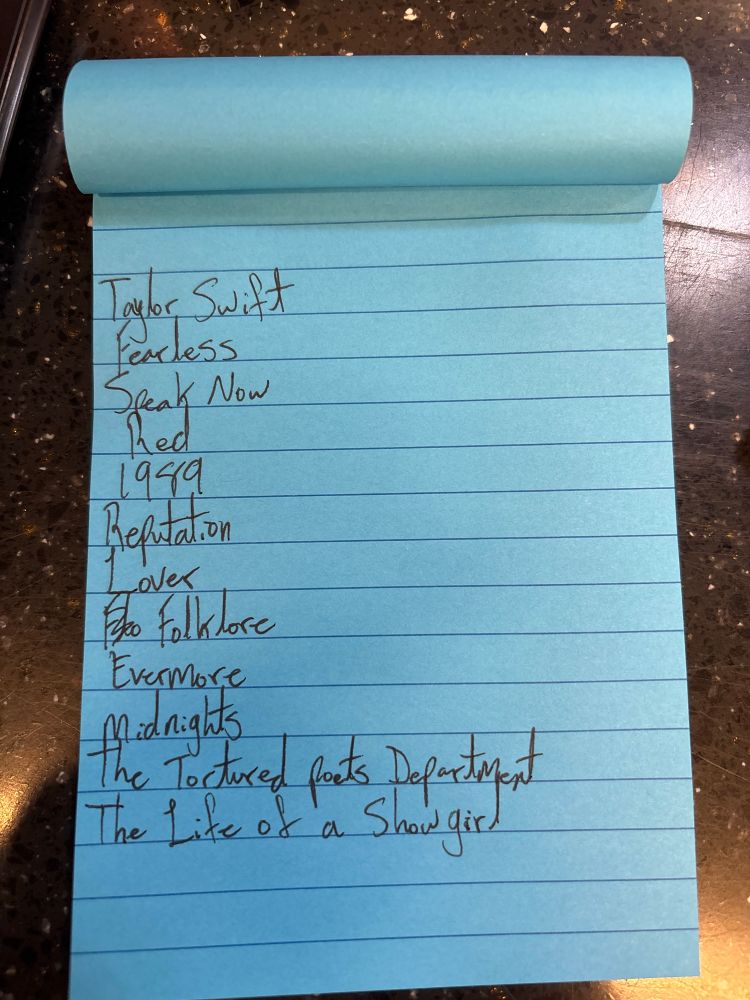 Taylor Swift
Fearless
Speak Now
Red
1989
Reputation
Lover
Folklore
Evermore
Midnights
The Tortured poets Department
The Life of a Showgirl